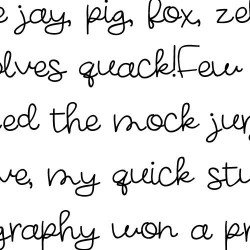 e jay, pig, fox, ze
olves quack!Few
ed the mock ju
ve, my quick stu
graphy won a p